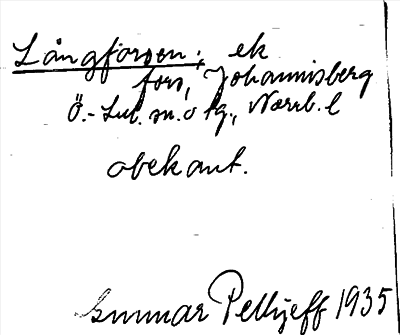 Långforsen; ek
fors, Johannisberg
Ö.-Lul. sn. o tg., Norrb. l
obekant.
Gunnar Pellijeff 1935